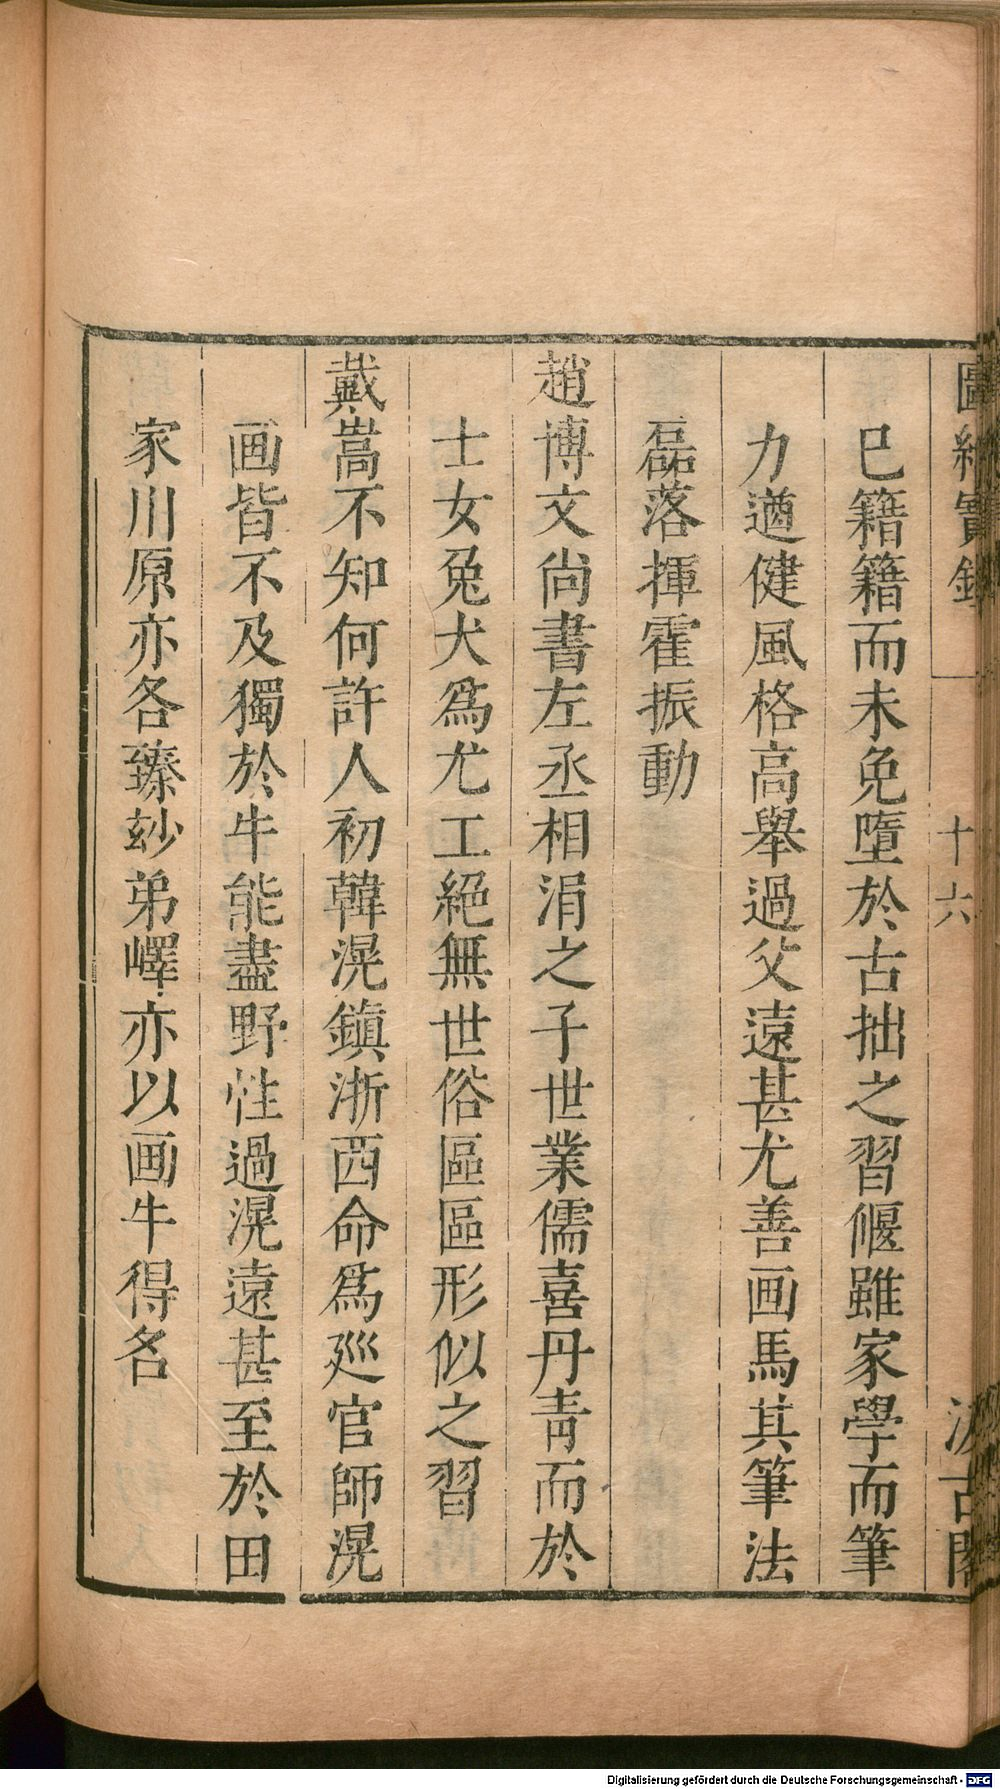 圖繪寶鑑 十六 汲古閣
已籍籍而未免墮於古拙之習偃雖家學而筆
力遒健風格高舉過父遠甚尤善画馬其筆法
磊落揮霍振動
趙博文尚書左丞相涓之子世業儒喜丹青而於
士女兔犬爲尤工絕無世俗區區形似之習
戴嵩不知何許人初韓滉鎮浙西命爲廵官師滉
画皆不及獨於牛能盡野性過滉遠甚至於田
家川原亦各臻玅弟嶧亦以画牛得名
Digitalisierung gefördert durch die Deutsche Forschungsgemeinschaft - DFG